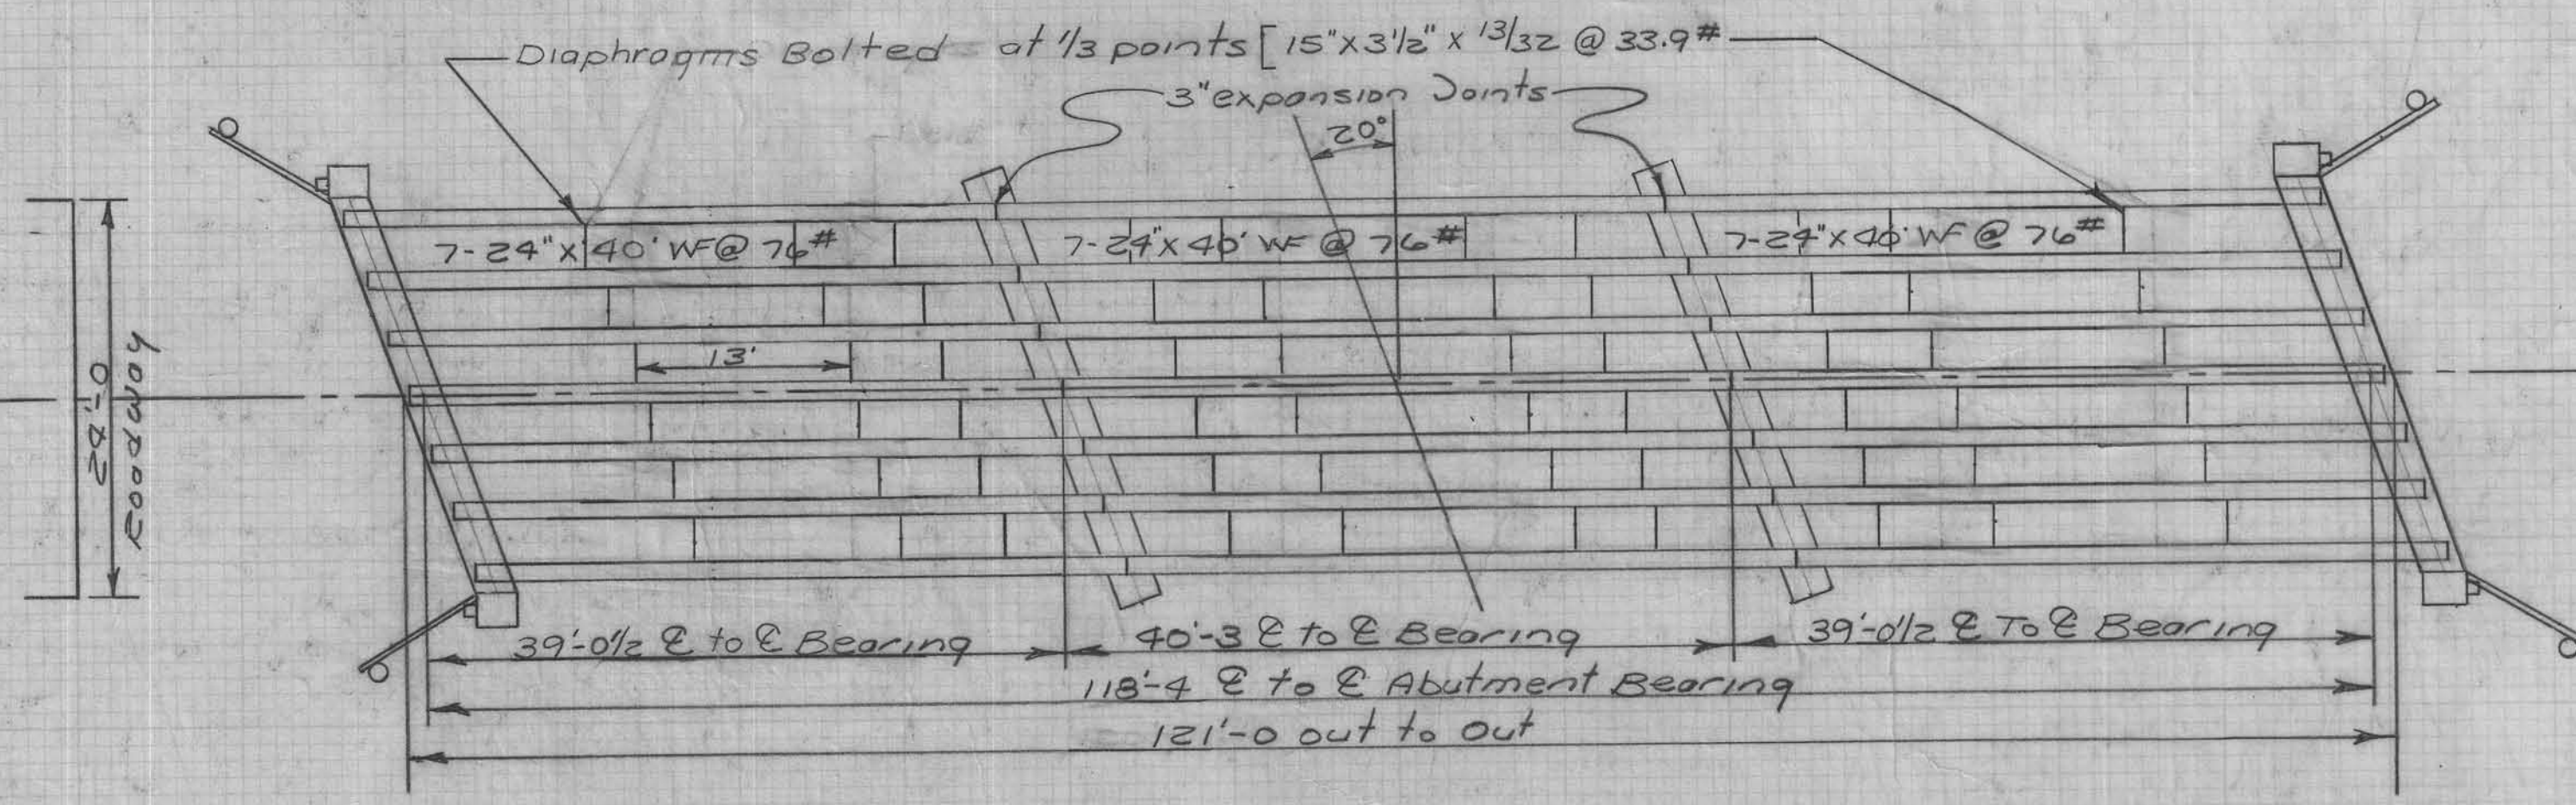 Diaphragms Bolted at 1/3 points [ 15" x 3 1/2" x 13/32 @ 33.9#
3" expansion Joints
20°
7-24" x 40' WF @ 76#
7-24" x 40' WF @ 76#
7-24" x 40' WF @ 76#
13'
24'-0
Roadway
39'-0 1/2 ℄ to ℄ Bearing
40'-3 ℄ to ℄ Bearing
39'-0 1/2 ℄ To ℄ Bearing
118'-4 ℄ to ℄ Abutment Bearing
121'-0 out to Out